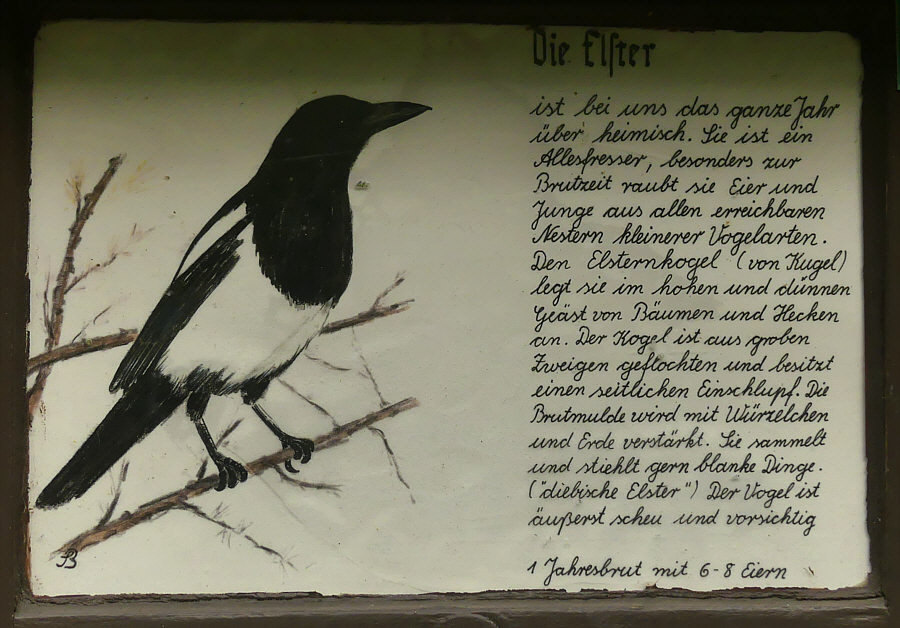 Die Elſter
ist bei uns das ganze Jahr
über heimisch. Sie ist ein
Allesfresser, besonders zur
Brutzeit raubt sie Eier und
Junge aus allen erreichbaren
Nestern kleinerer Vogelarten.
Den Elsternkogel (von Kugel)
legt sie im hohen und dünnen
Geäst von Bäumen und Hecken
an. Der Kogel ist aus groben
Zweigen geflochten und besitzt
einen seitlichen Einschlupf. Die
Brutmulde wird mit Würzelchen
und Erde verstärkt. Sie sammelt
und stiehlt gern blanke Dinge.
("diebische Elster") Der Vogel ist
äußerst scheu und vorsichtig
1 Jahresbrut mit 6-8 Eiern